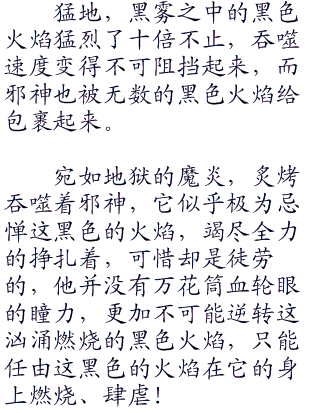 猛地，黑雾之中的黑色
火焰猛烈了十倍不止，吞噬
速度变得不可阻挡起来，而
邪神也被无数的黑色火焰给
包裹起来。
宛如地狱的魔炎，炙烤
吞噬着邪神，它似乎极为忌
惮这黑色的火焰，竭尽全力
的挣扎着，可惜却是徒劳
的，他并没有万花筒血轮眼
的瞳力，更加不可能逆转这
汹涌燃烧的黑色火焰，只能
任由这黑色的火焰在它的身
上燃烧、肆虐！